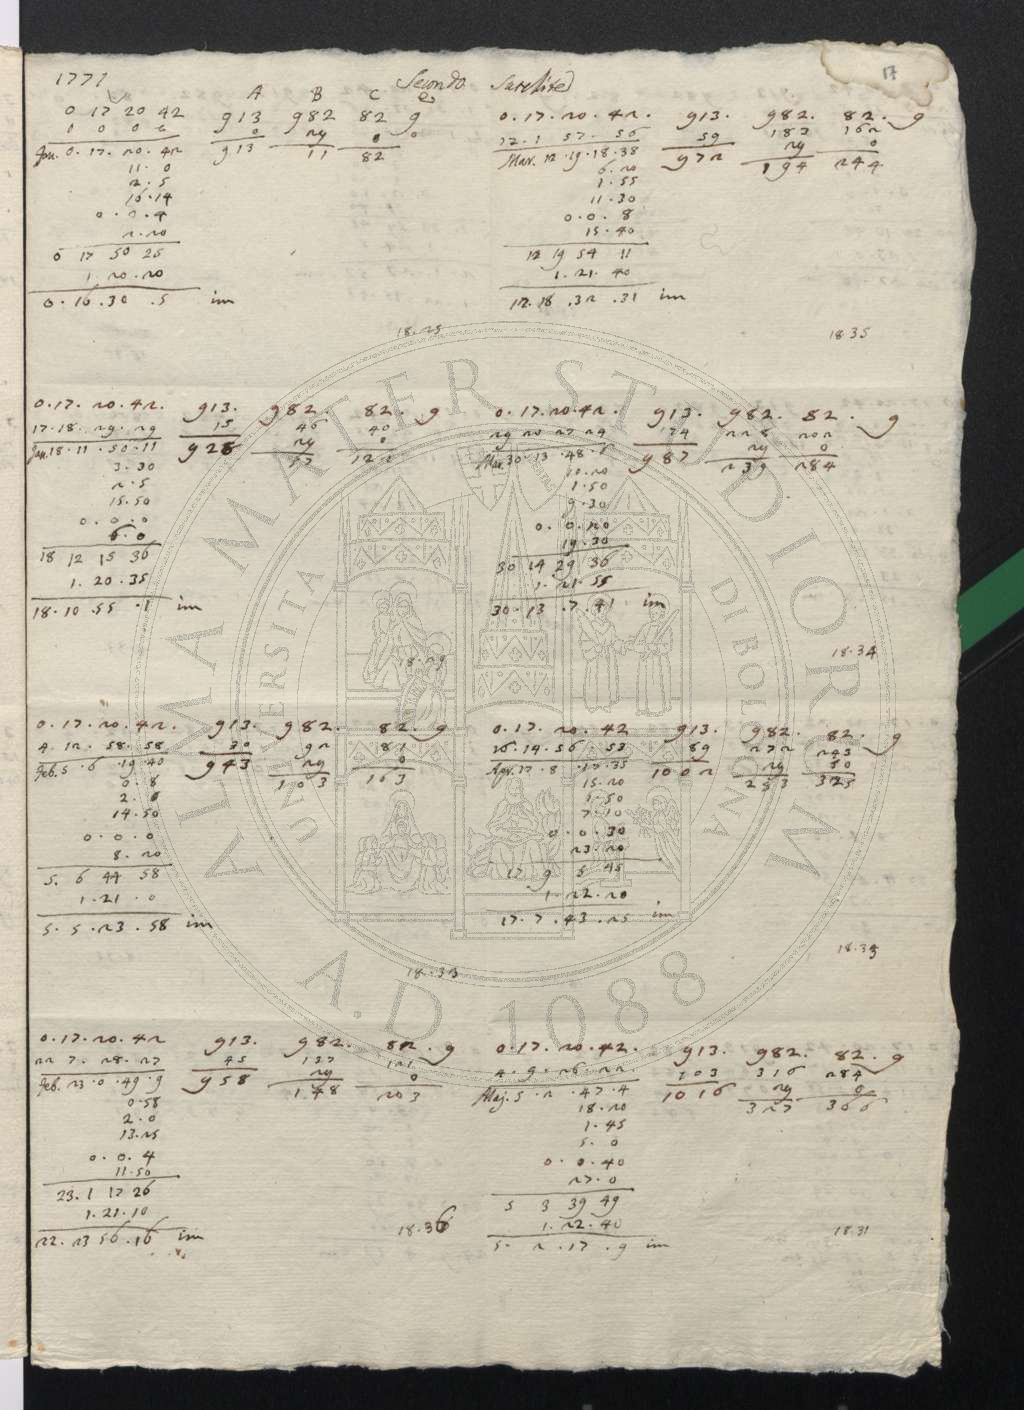 17
1771
Secondo Satellite
A B C
0 17 20 42 913 982 82 9
1 0 0 0 0 29 0 0
Jan. 0.17.20.42 913 11 82
11.0
2.5
16.14
0.2.4
2.20
0 17 50 25
1.20.20
0.16.30.5 im
18.25
0.17.20.42. 913. 982. 82. 9
17.18.29.29 15 46 40
Jan. 18.11.50.11 928 29 0
57 122
3.30
2.5
15.50
0.0.0
6.0
18 12 15 36
1.20.35
18.10.55.1 im
18.29
0.17.20.42. 913. 982. 82. 9
4.12.58.58 30 92 81
Feb. 5.6.19.40 943 29 0
103 163
0.8
2.0
14.50
0.0.0
8.20
5. 6 44 58
1.21.0
5.5.23.58 im
18.33
0.17.20.42 913. 982. 82. 9
22 7. 28. 27 45 137 121
Feb. 23.0.49.9 958 29 0
148 203
0.58
2.0
13.25
0.0.4
11.50
23.1 17 26
1.21.10
22.23 56.16 im
18.36
0.17.20.42. 913. 982. 82. 9
12.1 57.56 59 183 162
Mar. 12.19.18.38 972 29 0
194 244
6.20
1.55
11.30
0.0.8
15.40
12 19 54 11
1.21.40
12.18.32.31 im
18.35
0.17.20.42. 913. 982. 82. 9
29 20 27 29 174 228 202
Mar. 30.13.48.1 987 29 0
239 284
11.20
1.50
9.30
0.0.20
19.30
30 14 29 36
1.21.55
30.13.7.41 im
18.34
0.17.20.42 913. 982. 82. 9
16.14.56.53 89 272 243
Apr. 17.8.17.35 1002 29 30
15.20
1.50
7.10
0.0.30
23.20
17 9 5 45
1.22.20
17.7.43.25 im
18.33
0.17.20.42. 913. 982. 82. 9
4.9.26.22. 103 316 284
Maj. 5.2.47.4 1016 29 0
327 366
18.20
1.45
5.0
0.0.40
27.0
5 3 39 49
1.22.40
5. 2.17.9 im
18.31
ALMA MATER STUDIORUM
UNIVERSITA DI BOLOGNA
A.D. 1088